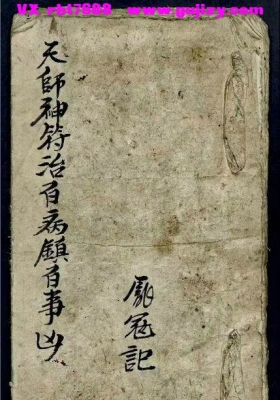 VX rbt7888 www.gujixy.com
天師神符治百病鎮百事凶
冠記